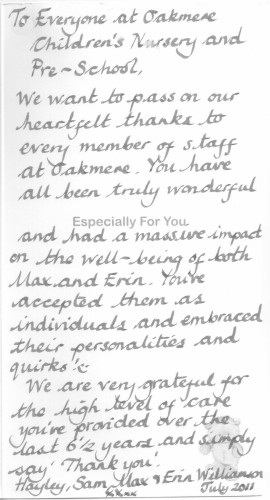 To Everyone at Oakmere
Children's Nursery and
Pre-School,
We want to pass on our
heartfelt thanks to
every member of staff
at Oakmere. You have
all been truly wonderful
Especially For You.
and had a massive impact
on the well-being of both
Max and Erin. You've
accepted them as
individuals and embraced
their personalities and
quirks!
We are very grateful for
the high level of care
you've provided over the
last 6½ years and simply
say 'Thank you'.
Hayley, Sam, Max & Erin Williamson
July 2011